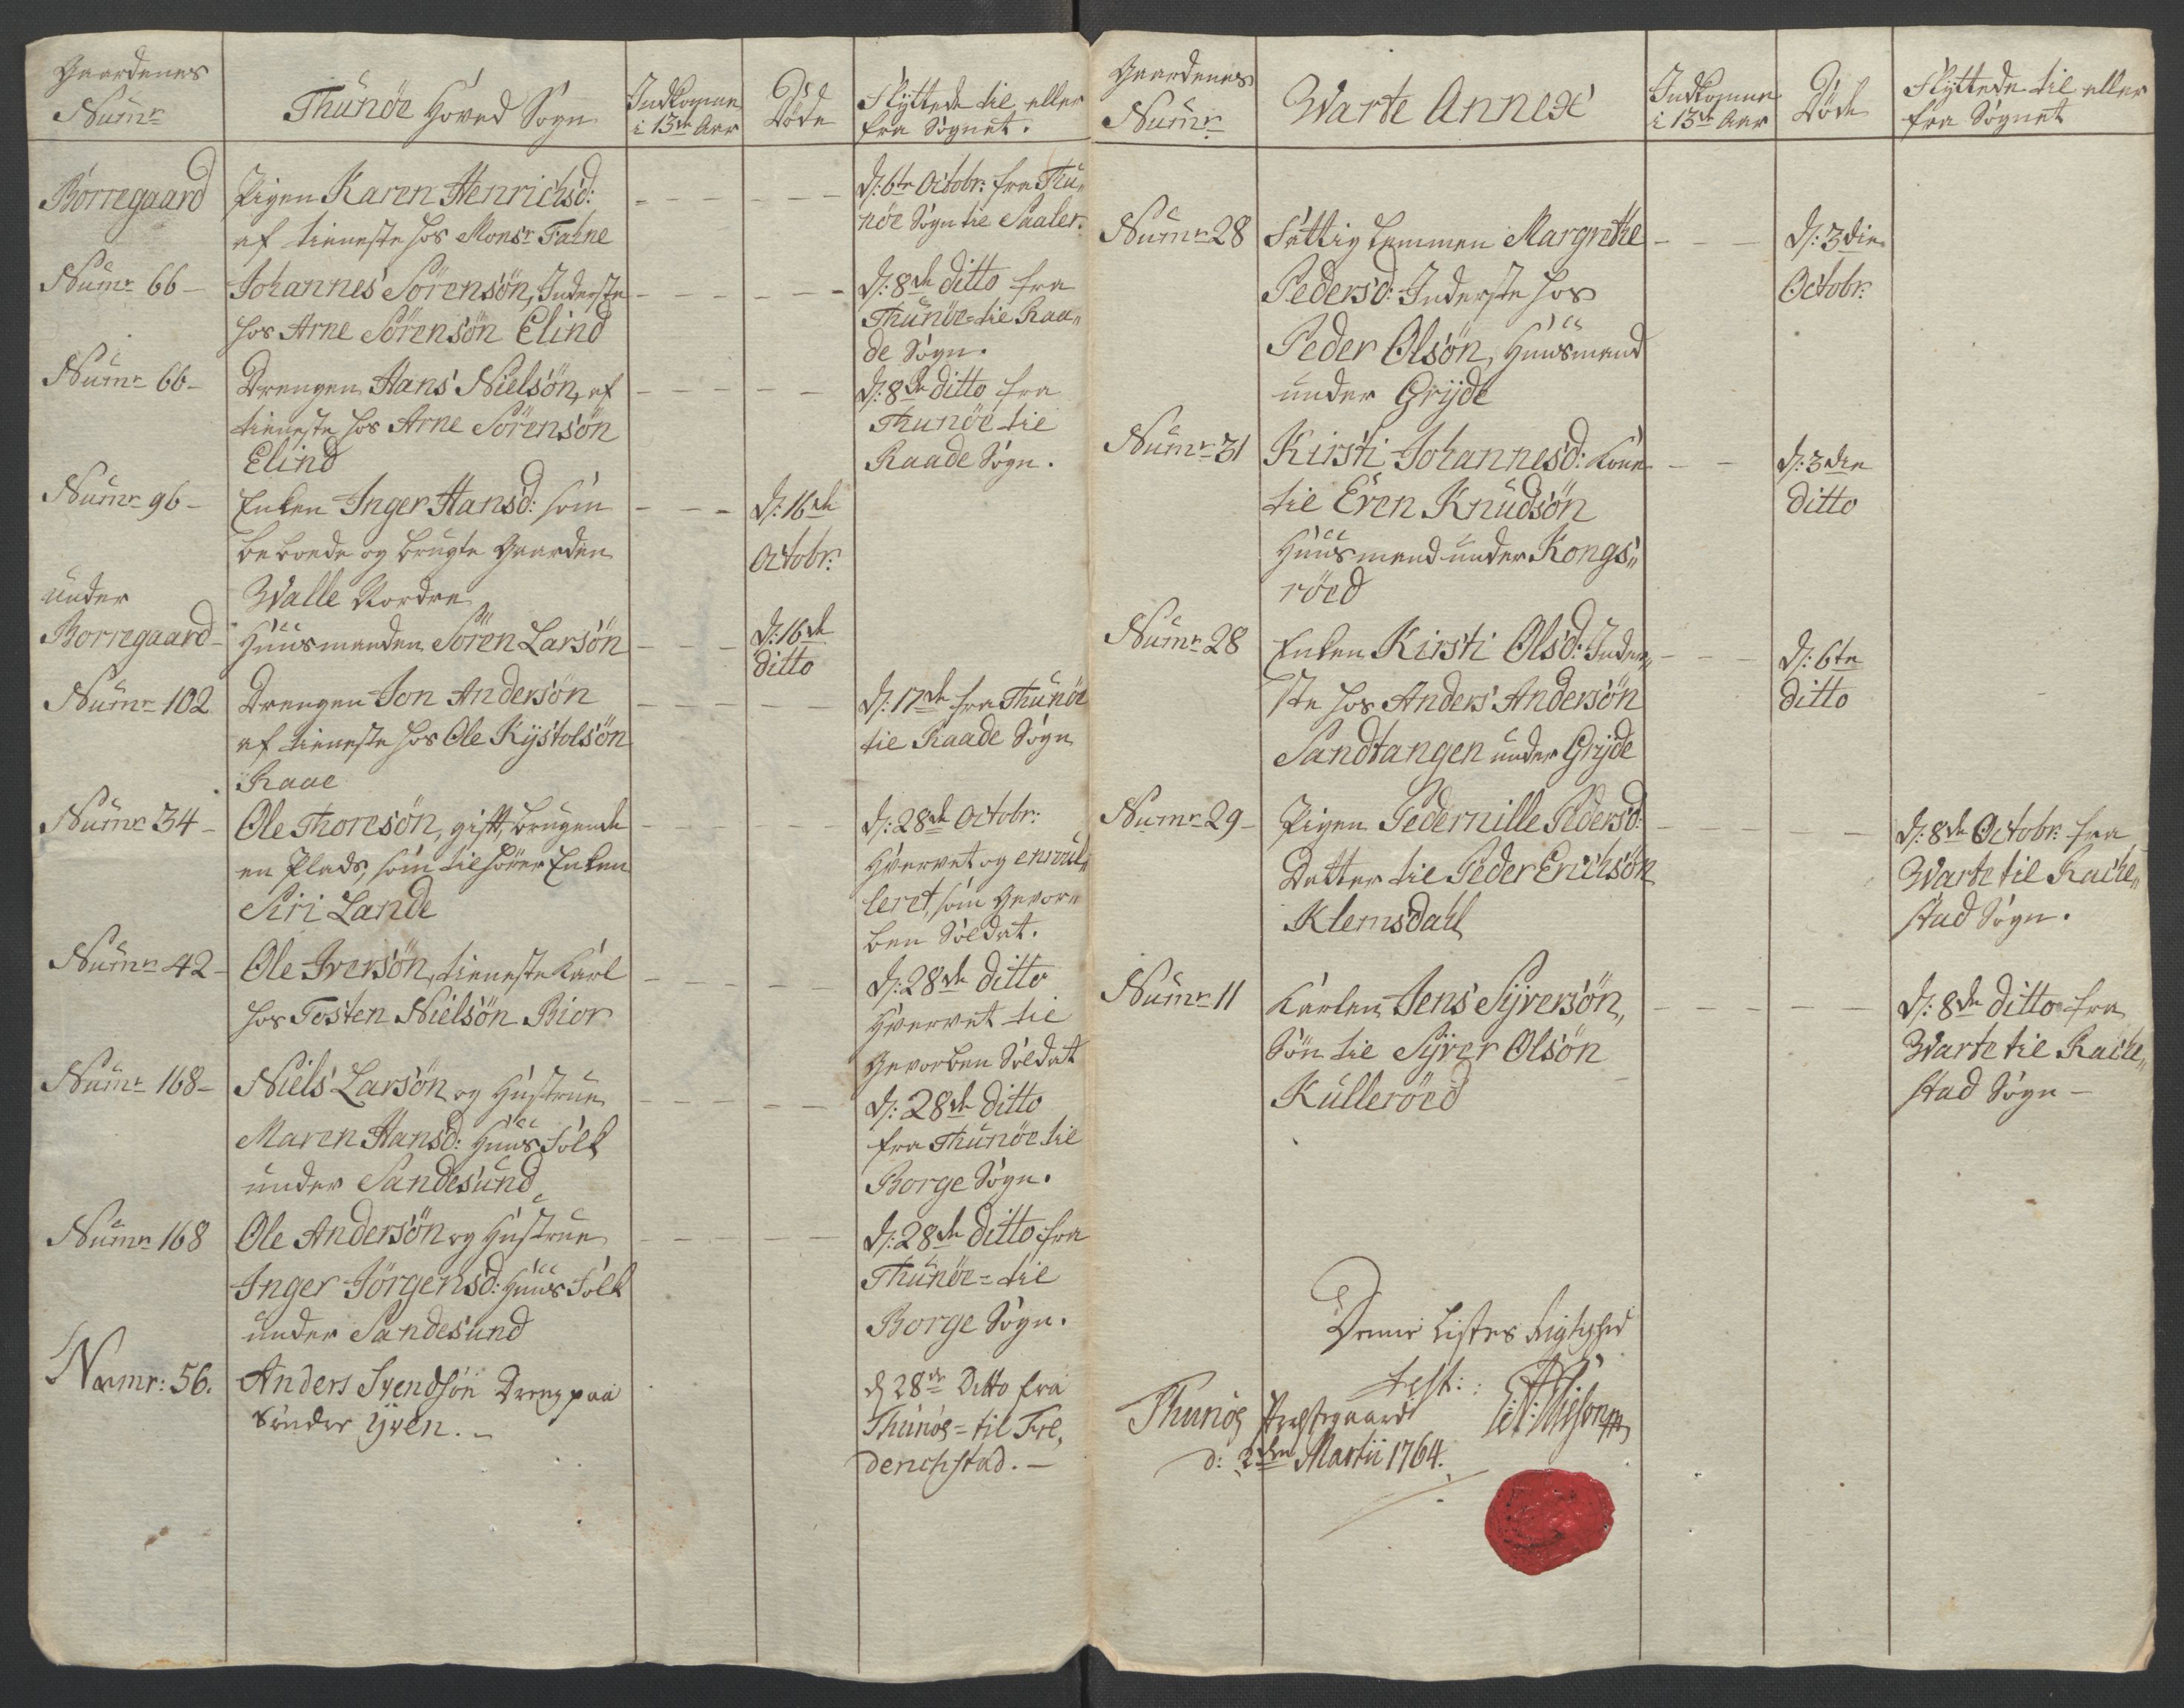 Gaardenes
Numr
Thunöe Hoved Sogn
Indkomne
i 13de Aar
Döde
Flyttede til eller
fra Sognet.
Borregaard
Pigen Karen Henrichsd:
af tieneste hos Monsr Falne
d: 6te Octobr: fra Thu„
nöe Sogn til Saaler.
Numr 66 –
Johannes Sörensön, Inderste
hos Arne Sörensön Elind
d: 8de ditto fra
Thunöe til Raa„
de Sogn.
Numr 66 –
Drengen Hans Nielsön, af
tieneste hos Arne Sörensön
Elind
d: 8de ditto fra
Thunöe til
Raade Sogn.
Numr 96 –
Enken Inger Hansd: som
beboede og brugte Gaarden
Walle Nordre
d: 16de
Octobr:
under
Borregaard –
Huusmanden Sören Larsön
d: 16de
ditto
Numr 102
Drengen Jon Andersön
af tieneste hos Ole Kystolsön
Raae
d: 17de fra Thunöe
til Raade Sogn
Numr 34 –
Ole Thoresön, gift, brugende
en Plads, som tilhörer Enken
Siri Lande
d: 28de Octobr:
Hvervet og enroul„
leret, som Gevor„
ben Soldat.
Numr 42 –
Ole Iversön, tieneste Karl
hos Tosten Nielsön Bior
d: 28de ditto
Hvervet til
Gevorben Soldat
Numr 168 –
Niels Larsön og Hustrue
Maren Hansd: Huus Folk
under Sandesund
d: 28de ditto
fra Thunöe til
Borge Sogn.
Numr 168
Ole Andersön og Hustrue
Inger Jörgensd: Huus Folk
under Sandesund
d: 28de ditto fra
Thunöe = til
Borge Sogn.
Numr: 56.
Anders Svendsön Dreng paa
Sönder Yven. –
d 28de Ditto fra
Thunöe = til Fre„
derichstad. –
Gaardenes
Numr
Warte Annex
Indkomne
i 13de Aar
Döde
Flyttede til eller
fra Sognet
Numr 28
Fattig Lemmen Margrethe
Pedersd: Inderste hos
Peder Olsön, Huusmand
under Gryde
d: 3die
Octobr:
Numr 31
Kirsti Johannesd: Kone
til Even Knudsön
Huusmand under Kongs„
röed
d: 3die
ditto
Numr 28
Enken Kirsti Olsd: Inder„
ste hos Anders Andersön
Sandtangen under Gryde
d: 6te
ditto
Numr 29 –
Pigen Pedernille Pedersd:
Datter til Peder Erichsön
Klemsdahl
d: 8de Octobr: fra
Warte til Rache„
stad Sogn.
Numr 11
Karlen Jens Syversön,
Sön til Syver Olsön
Kulleröed
d: 8de ditto fra
Warte til Rache„
stad Sogn –
Denne Listes Rigtighed
test:
Thunöe Præstegaard
d: 2den Martii 1764.